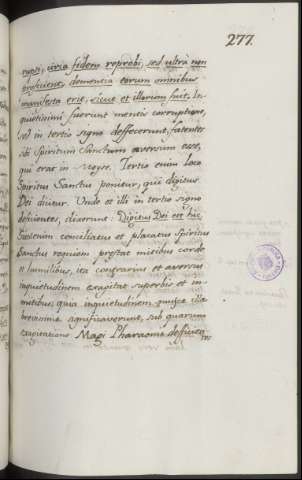 277.
rupti, circa fidem reprobi, sed ultra non
proficient, dementia eorum omnibus
manifesta erit, sicut et illorum fuit. In-
quietissimi fuerunt mentis corruptione,
sed in tertio signo deffecerunt, fatentes
sibi Spiritum Sanctum aversum esse,
qui erat in Moyse. Tertio enim loco
Spiritus Sanctus ponitur, qui digitus
Dei dicitur. Unde et illi in tertio signo
deficientes, dixerunt: Digitus Dei est hic.
Sicut enim conciliatus et placatus Spiritus
Sanctus requiem prestat mitibus corde,
et humilibus, ita contrarius et aversus
inquietudinem exagitat superbis et im-
mitibus quia inquietudinem musce ille
brevissime significaverunt, sub quarum
exagitatione Magi Pharaonis defficien-
tes